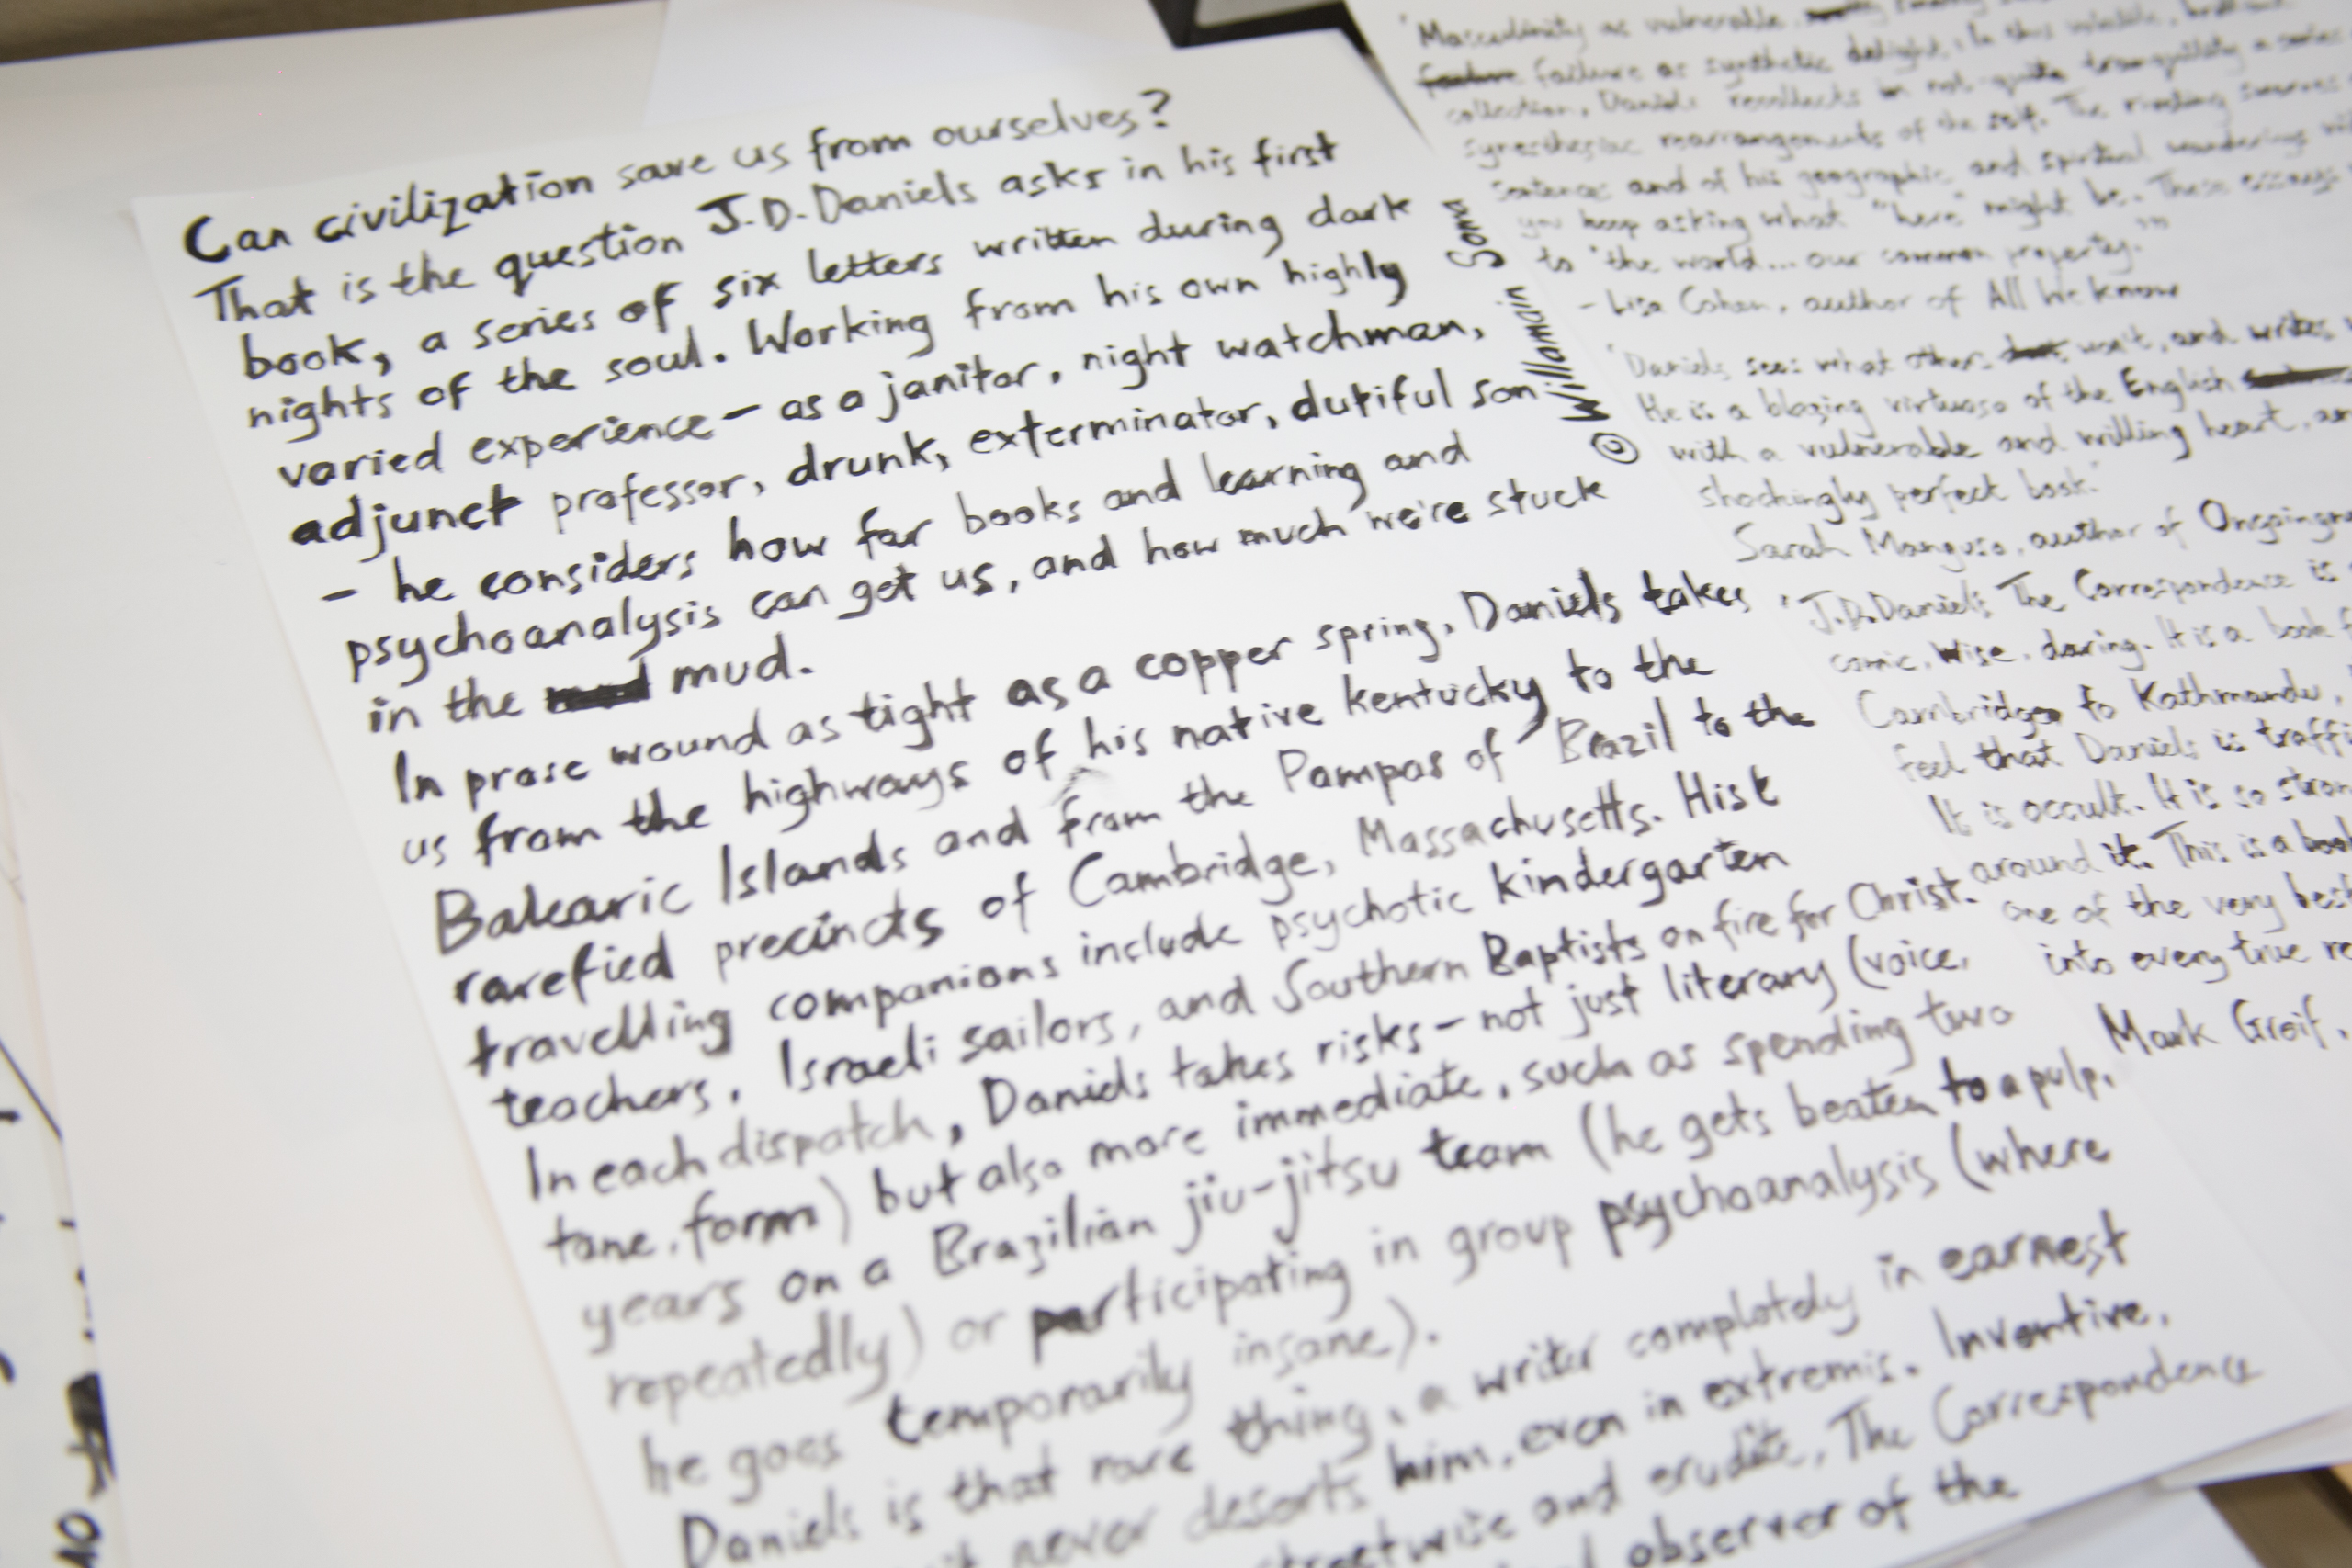 Can civilization save us from ourselves?
That is the question J.D. Daniels asks in his first
book, a series of six letters written during dark
nights of the soul. Working from his own highly
varied experience – as a janitor, night watchman,
adjunct professor, drunk, exterminator, dutiful son
– he considers how far books and learning and
psychoanalysis can get us, and how much we're stuck
in the mud.
In prose wound as tight as a copper spring, Daniels takes
us from the highways of his native kentucky to the
Balearic Islands and from the Pampas of Brazil to the
rarefied precincts of Cambridge, Massachusetts. His
travelling companions include psychotic kindergarten
teachers, Israeli sailors, and Southern Baptists on fire for Christ.
In each dispatch, Daniels takes risks – not just literary (voice,
tone, form) but also more immediate, such as spending two
years on a Brazilian jiu-jitsu team (he gets beaten to a pulp,
repeatedly) or participating in group psychoanalysis (where
he goes temporarily insane).
Daniels is that rare thing, a writer completely in earnest
never deserts him, even in extremis. Inventive,
streetwise and erudite, The Correspondence
observer of the
© Willamain Soma
'Masculinity as vulnerable
failure as synthetic delight. In this volatile,
collection, Daniels recollects in not-quite tranquility a series
synesthesiac rearrangements of the self. The riveting swerves
sentences and of his geographic and spiritual wanderings
you keep asking what "here" might be. These essays
to 'the world... our common property.'"
- Lisa Cohen, author of All We know
'Daniels sees what others won't, and writes
He is a blazing virtuoso of the English
with a vulnerable and willing heart,
shockingly perfect book.'
Sarah Manguso, author of
'J.D. Daniels The Correspondence is
comic, wise, daring. It is a book
Cambridge to Kathmandu,
feel that Daniels is
It is occult. It is so
around it. This is a
one of the very best
into every true
Mark Greif,